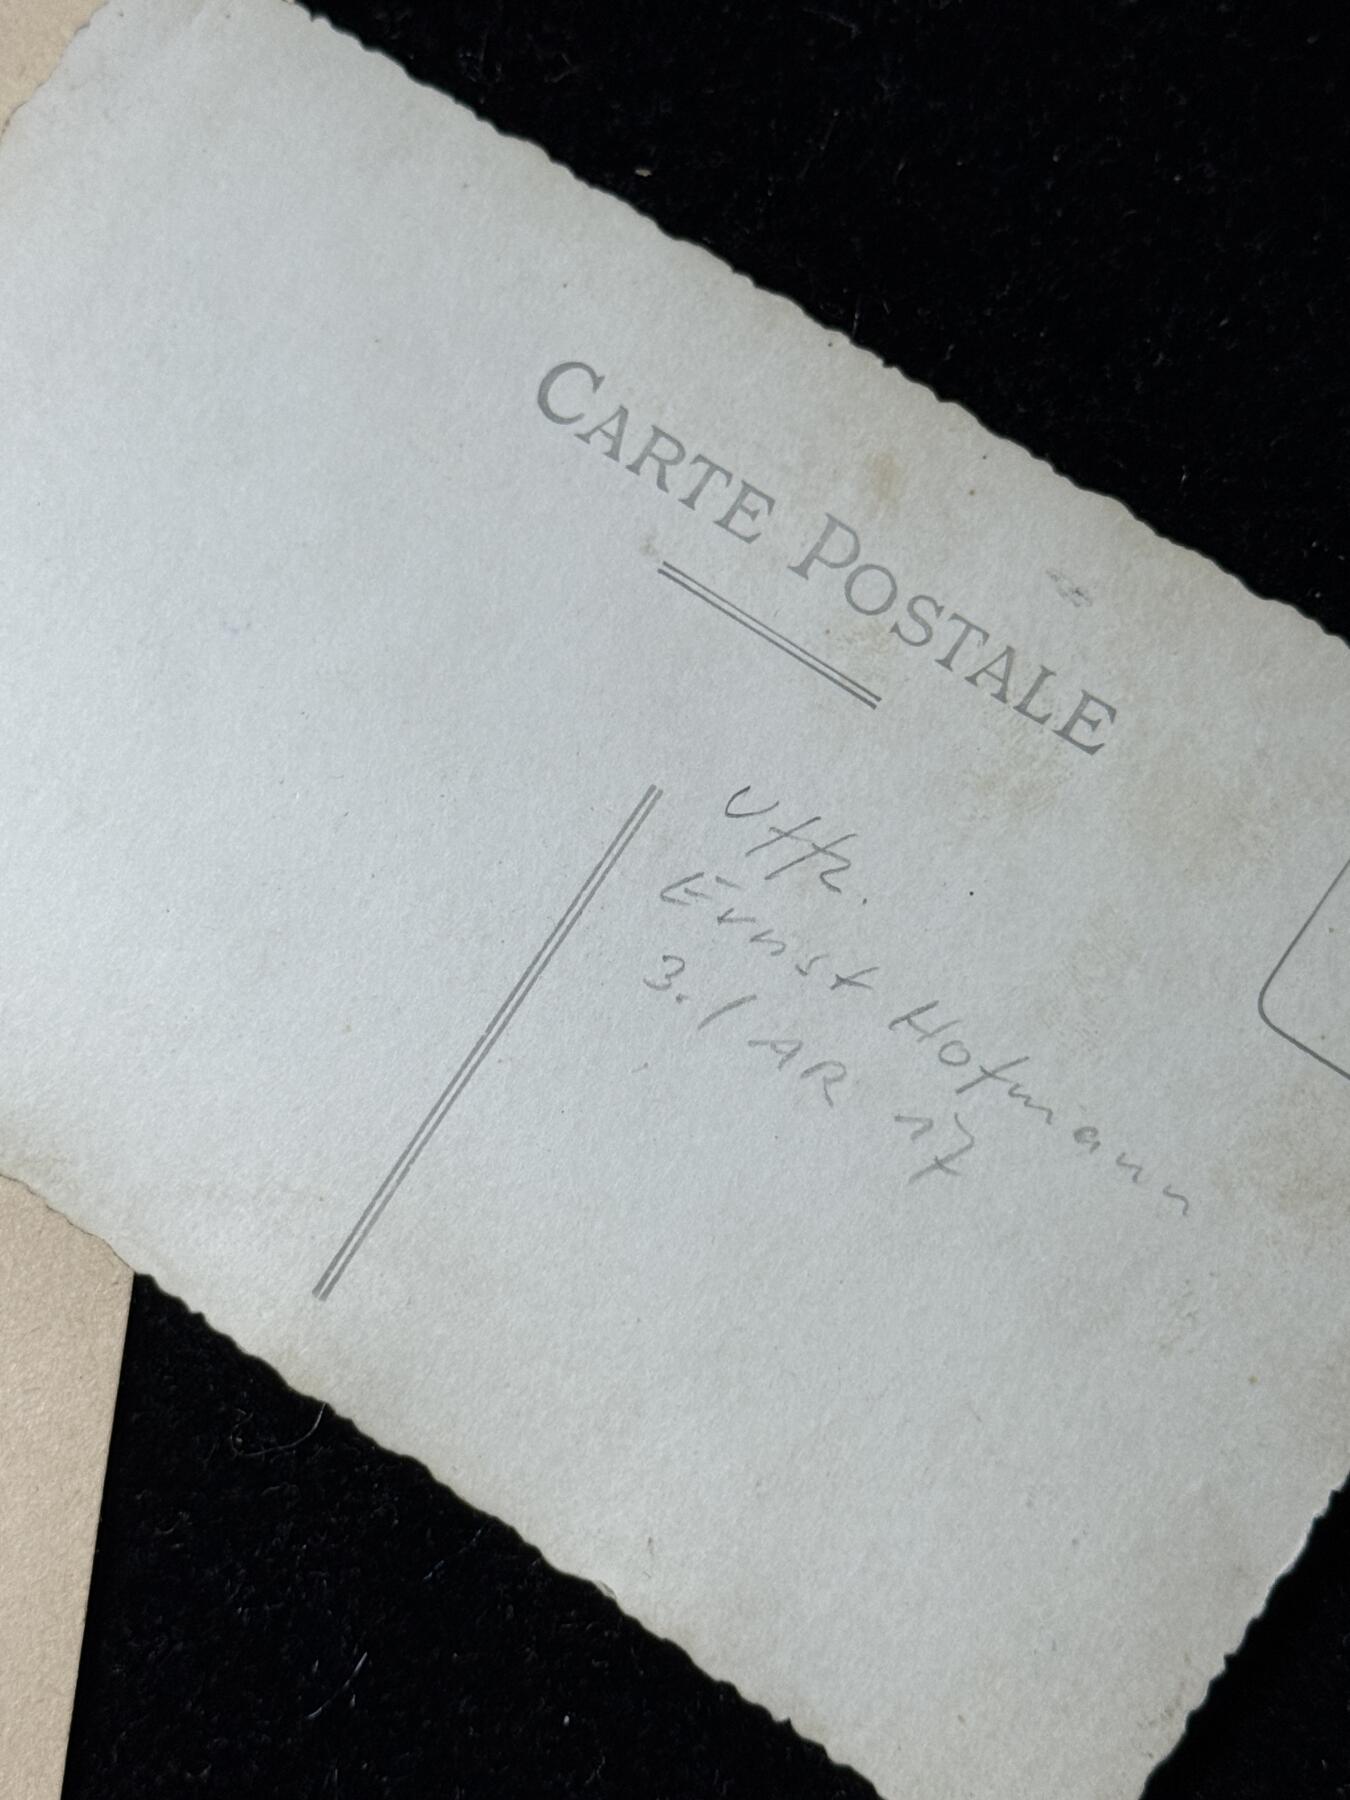 CARTE POSTALE
Uffz.
Ernst Hofmann
3./ AR 17